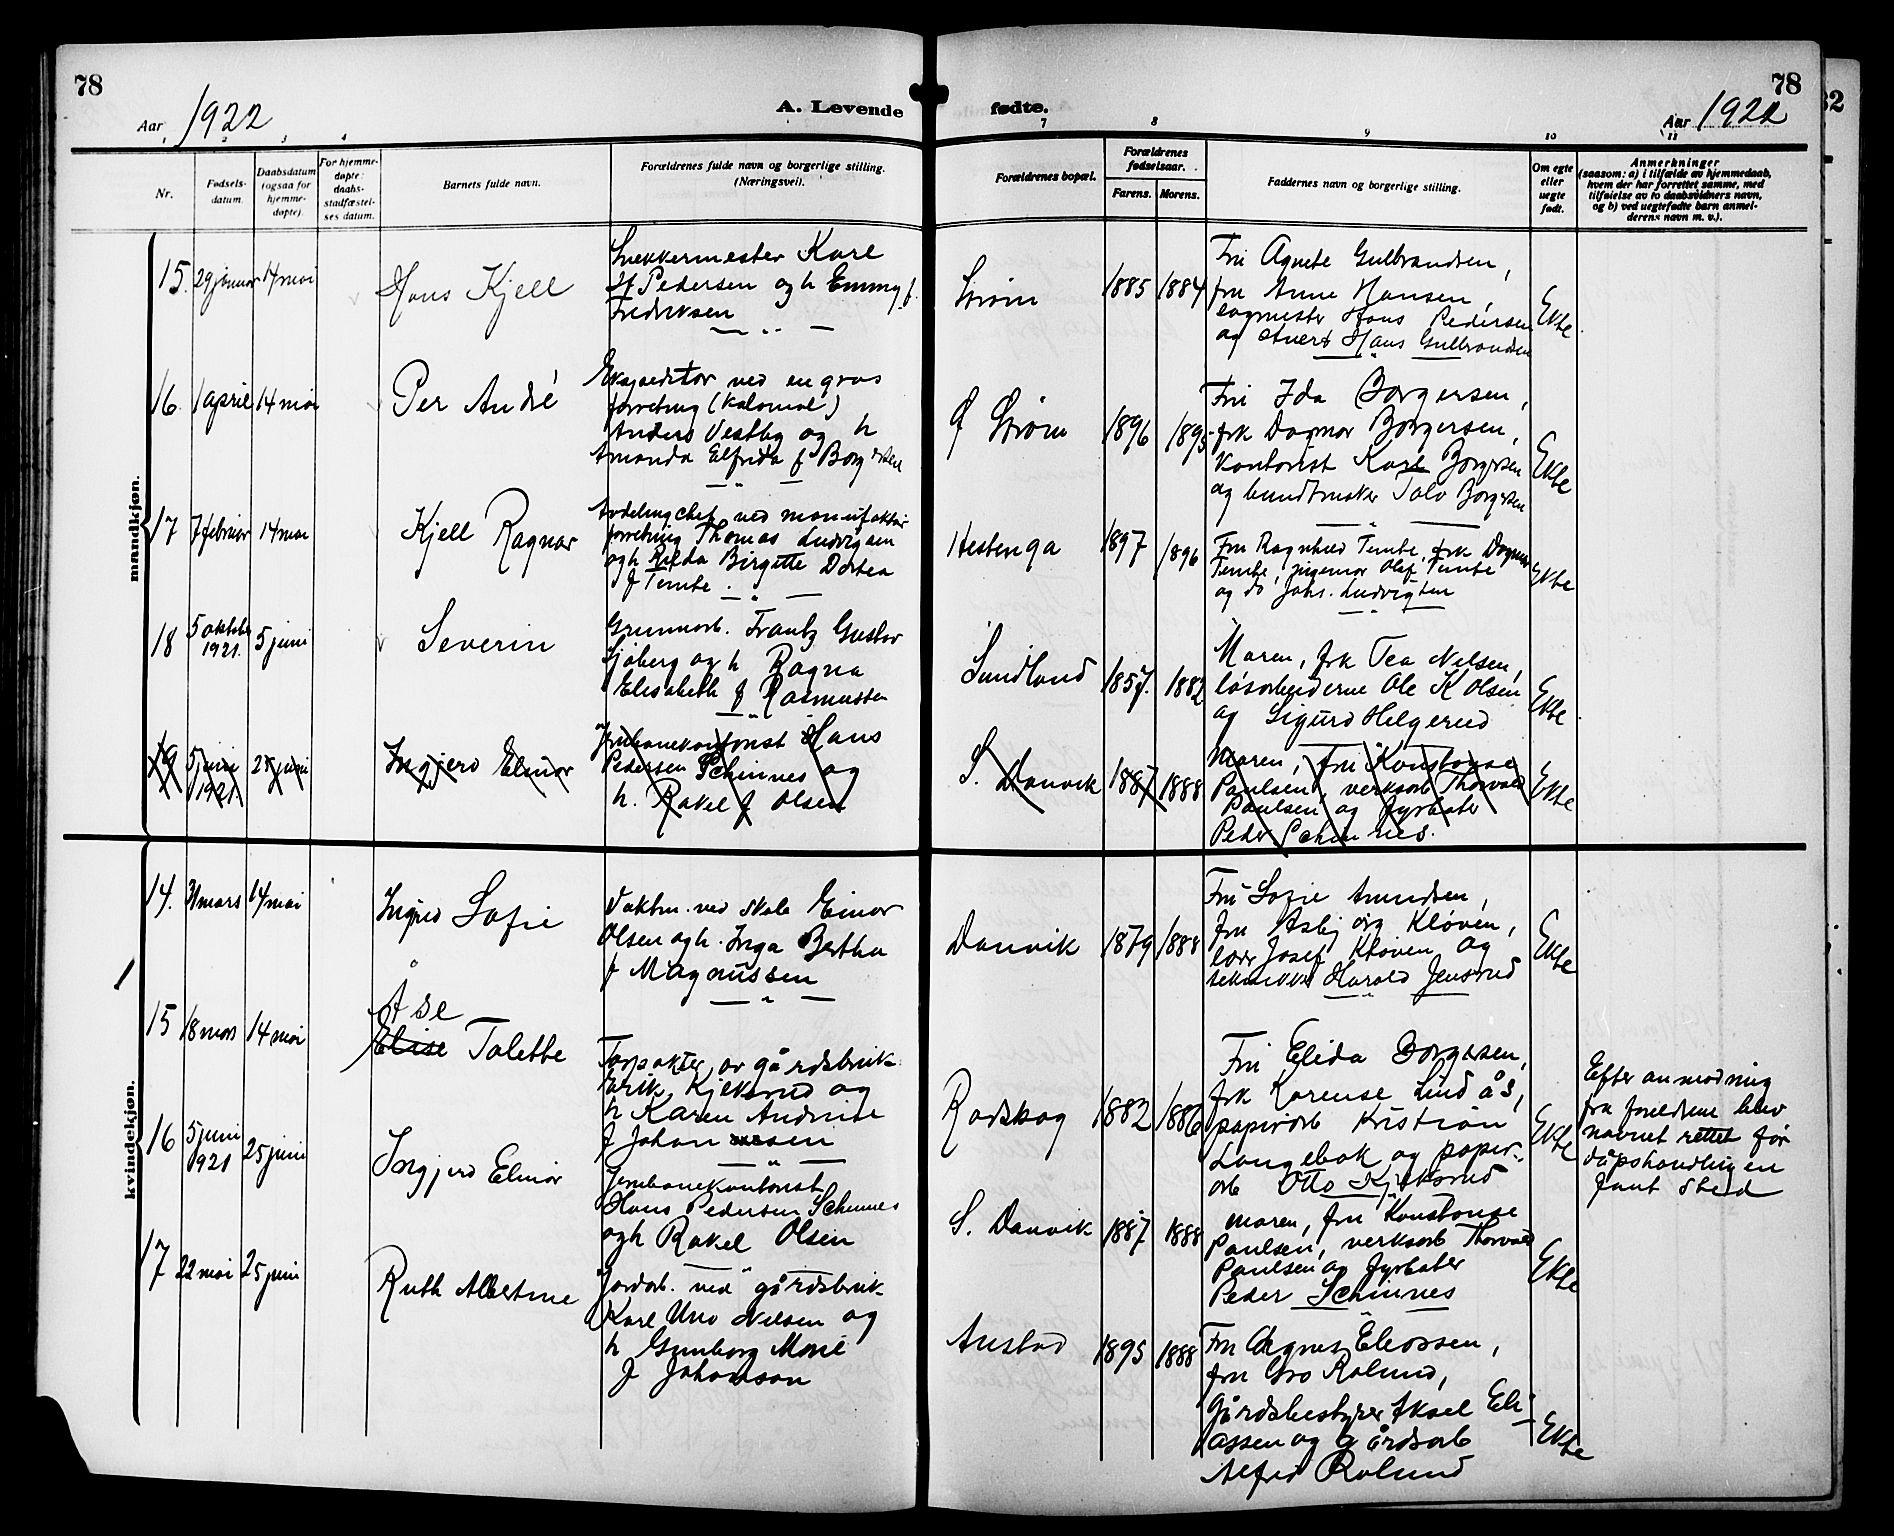 78
78
32
Aar 1922
A. Levende
fødte.
Aar 1922
1 2 3 4
7 8 9 10 11
Nr.
Fødsels-
datum.
Daabsdatum
(ogsaa for
hjemme-
døpte).
For hjemme-
døpte:
daabs-
stadfæstel-
ses datum.
Barnets fulde navn.
Forældrenes fulde navn og borgerlige stilling.
(Næringsvei).
Forældrenes bopæl.
Forældrenes
fødselsaar.
Farens. Morens.
Faddernes navn og borgerlige stilling.
Om egte
eller
uegte
født.
Anmerkninger
(saasom: a) i tilfælde av hjemmedaab,
hvem der har forrettet samme, med
tilføielse av to daabsvidners navn,
og b) ved uegtefødte barn anmel-
derens navn m. v.).
mandkjøn.
15. 29 januar 14 mai
Hans Kjell
Snekkermester Karl
H Pedersen og h Emmy f.
Fredriksen
Strøm
1885 1884
Fru Agnete Gulbrandsen,
fru Anne Hansen,
sagmester Hans Pedersen
og Hans Gulbrandsen
Ekte
16. 1 april 14 mai
Per André
Ekspeditør ved en gros
forretning (kolonial)
Anders Vestby og h
Amanda Elfrida f Borgersen
Ø Strøm
1896 1895
Fru Ida Borgersen,
frk Dagmar Borgersen,
kontorist Karl Borgersen
og bundtmaker Tolv Borgersen
Ekte
17 7 februar 14 mai
Kjell Ragnar
Avdelingschef ved manufaktur
forretning Thomas Ludvigsen
og h Rilda Birgitte Dortea
f Tembe.
Hestenga
1897 1896
Fru Ragnhild Tembe, frk Dagmar
Tembe, ingeniør Olaf Tembe
og do Johs. Ludvigsen
Ekte
18 5 oktober 1921. 5 juni
Severin
Grunnarb. Frantz Gustav
Sjøberg og h Ragna
Elisabeth f Rasmussen
Sundland
1857. 1882
Moren, frk Tea Nelsen,
løsarbeiderne Ole K Olsen
og Sigurd Helgerud
Ekte
19 5 juni 1921 25 juni
Ingjerd Elinor
Jernbanekontorist Hans
Pedersen Schinnes og
h. Rakel f Olsen
S. Danvik
1887 1888
Moren, fru Konstanse
Paulsen, verksarb Thorvald
Paulsen og fyrbøter
Peder Schinnes.
Ekte
kvindekjøn.
14. 31 mars 14 mai
Ingrid Sofie
Vaktm. ved skole Einar
Olsen og h. Inga Bertha
f Magnussen
Danvik
1879 1888
Fru Sofie Amundsen,
fru Asbjørg Kløven,
Josef Kløven og
Harald Jensrud
Ekte
15 18 mars 14 mai
Åse
Elise Tolette
Forpakter av gårdsbruk
Erik Kjeksrud og
h Karen Andrine
f Johannesen
Rødskog
1882 1886
Fru Elida Borgersen,
frk Karense Lindås,
papirarb Kristian
Langebak og papir-
arb Otto Kjeksrud
Ekte
Efter anmodning
fra foreldrene blev
navnet rettet før
dåpshandlingen
fant sted
16 5 juni 1921 25 juni
Ingjerd Elinor
Jernbanekontorist
Hans Pedersen Schinnes
og h Rakel Olsen
S. Danvik
1887 1888
Moren, fru Konstanse
Paulsen, verksarb Thorvald
Paulsen og fyrbøter
Peder Schinnes
Ekte
17 22 mai 25 juni
Ruth Albertine
Jordarb. ved gårdsbruk
Karl Uno Nelsen og
h Gunborg Marie
f Johanson
Austad
1895 1888
Fru Agnes Eliassen,
fru Gro Rolund,
Gårdsbestyrer Aksel Eli-
assen og gårdsarb
Alfred Rolund
Ekte